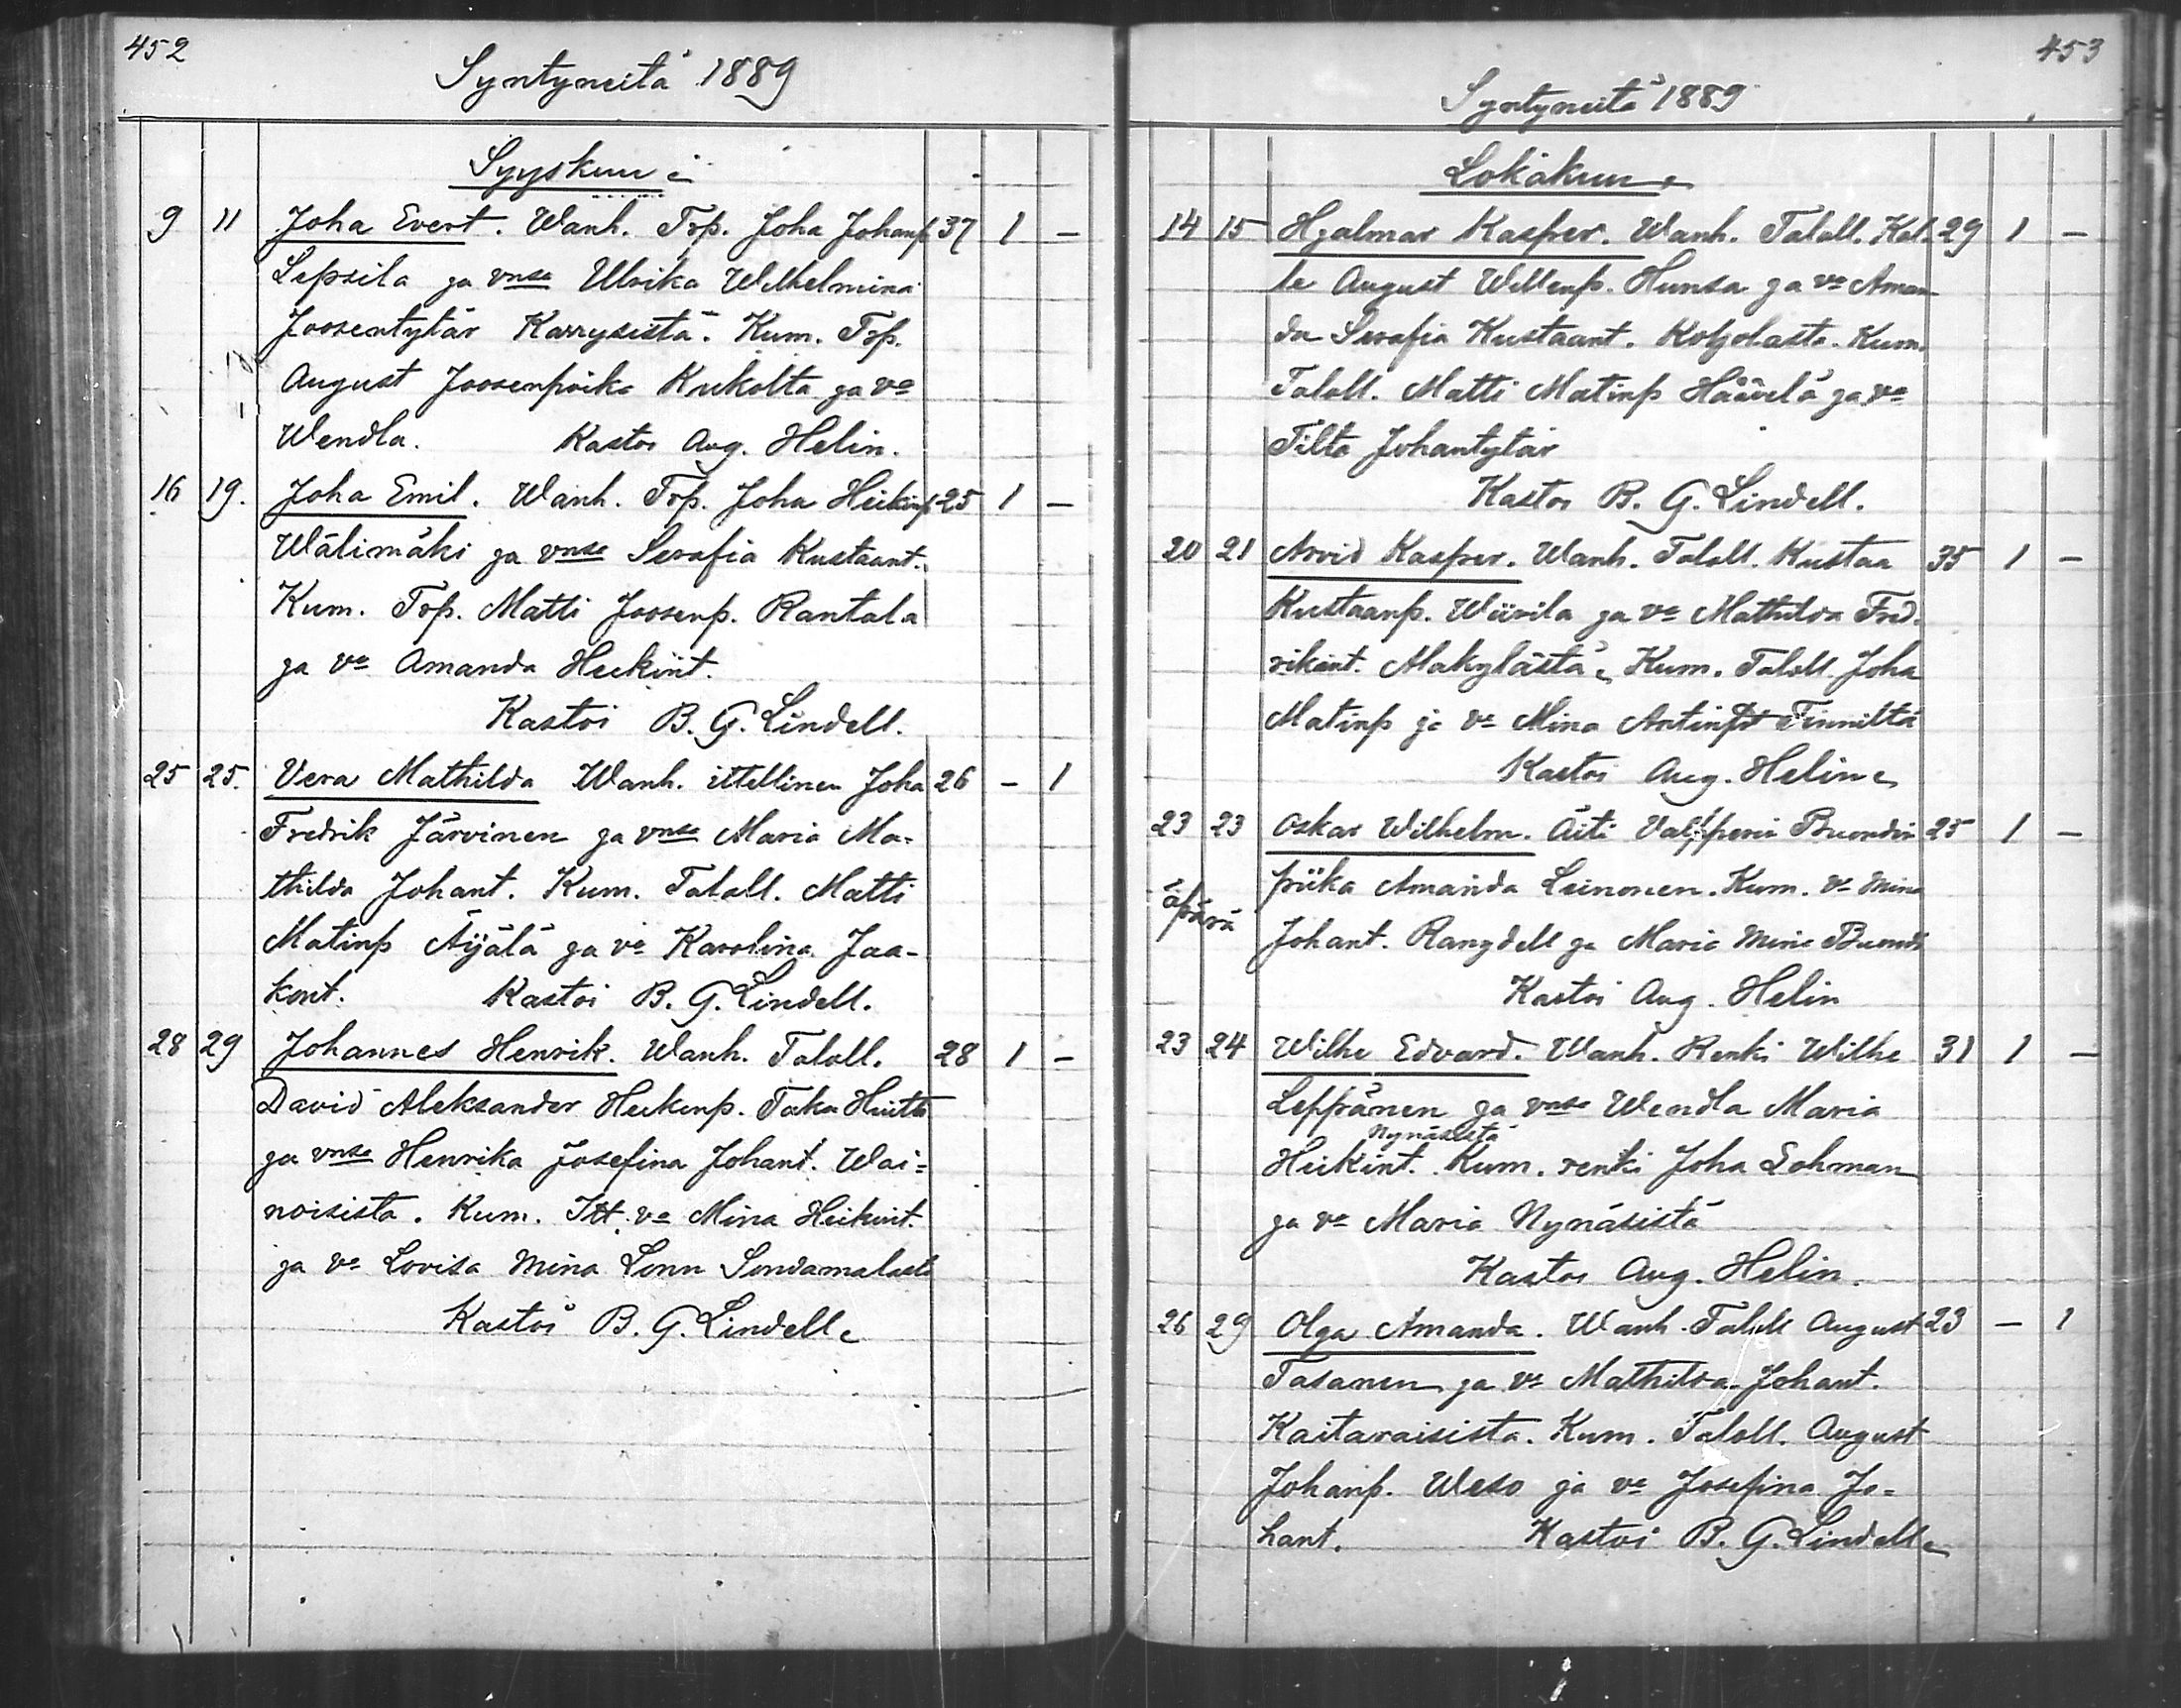 452
Syntyneitä 1889
Syyskuu
9 11 Joha Evert. Wanh. Trp. Joha Johanp 37 1 –
Lepsila ja vnsa Ulrika Wilhelmina
Joosentytär Karrysistä. Kum. Trp.
August Joosenpoika Kukolta ja va
Wendla. Kastoi Aug. Helin.
16 19. Joha Emil. Wanh. Trp. Joha Heikinp 25 1 –
Wälimäki ja vnsa Serafia Kustaant.
Kum. Trp. Matti Joosenp. Rantala
ja va Amanda Heikint.
Kastoi B. G. Lindell.
25 25. Vera Mathilda Wanh. ittellinen Joha 26 – 1
Fredrik Järvinen ja vnsa Maria Ma-
thilda Johant. Kum. Taloll. Matti
Matinp Äijälä ja va Karolina Jaa-
kont. Kastoi B. G. Lindell.
28 29 Johannes Henrik. Wanh. Taloll. 28 1 –
David Aleksander Heikinp. Taka
ja vnsa Henrika Josefina Johant. Wai=
noisista. Kum. Itt. va Mina Heikint.
ja va Lovisa Mina Lönn
Kastoi B. G. Lindell
453
Syntyneitä 1889
Lokakuu
14 15 Hjalmar Kasper. Wanh. Taloll. Kal- 29 1 –
le August Willenp. Hunsa ja va Aman
da Serafia Kustaant. Koljolasta. Kum.
Taloll. Matti Matinp Häävelä ja va
Tilta Johantytär
Kastoi B. G. Lindell.
20 21 Arvid Kasper. Wanh. Taloll. Kustaa 35 1 –
Kustaanp. Wiirila ja va Mathilda Fred-
rikint. Alakylästä. Kum. Taloll. Joha
Matinp ja va Mina Antinpt Finniltä
Kastoi Aug. Helin
23 23 Oskar Wilhelm. Äiti 25 1 –
äpärä piika Amanda Leinonen. Kum. va Mina
Johant. Rangdell ja Maria Mina
Kastoi Aug. Helin
23 24 Wilhe Edvard. Wanh. Renki Wilhe 31 1 –
Leppänen ja vnsa Wendla Maria
Nynäsistä
Heikint. Kum. renki Joha Lohman
ja va Maria Nynäsistä
Kastoi Aug. Helin.
26 29 Olga Amanda. Wanh. Taloll August 23 – 1
Tasanen ja va Mathilda Johant.
Kaitaraisista. Kum. Taloll. August
Johanp. Weso ja va Josefina Jo=
hant. Kastoi B. G. Lindell